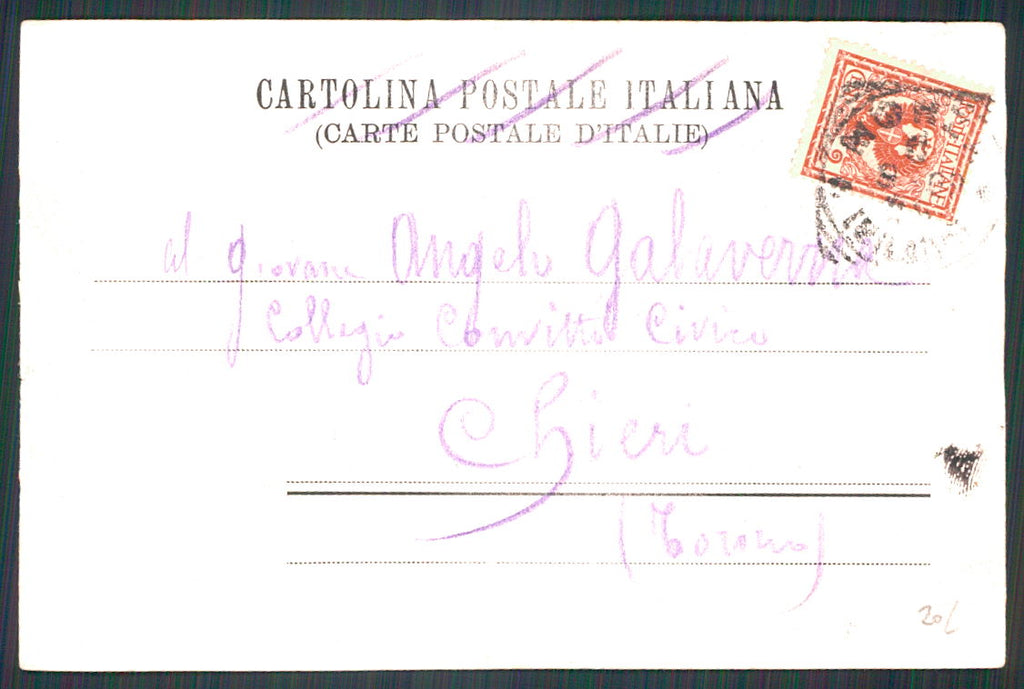 CARTOLINA POSTALE ITALIANA
(CARTE POSTALE D'ITALIE)
POSTE·ITALIANE
2
al giovane Angelo Galaverna
Collegio Convitto Civico
Chieri
(Torino)
20/